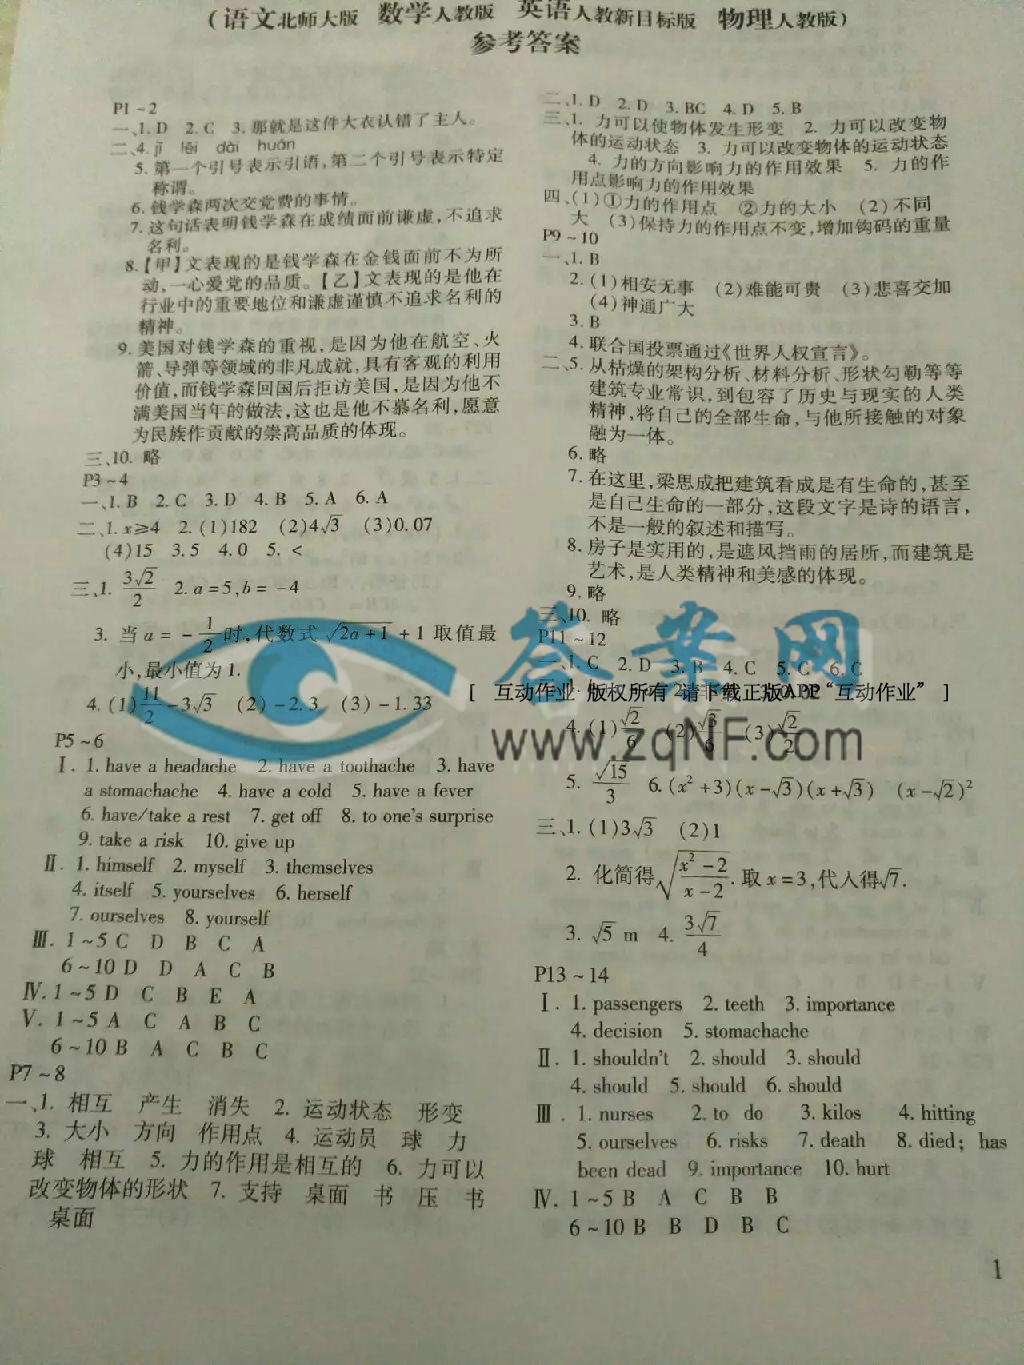 (语文北师大版 数学人教版 英语人教新目标版 物理人教版)
参考答案
P1~2
一、1. D 2. C 3. 那就是这件大衣认错了主人。
二、4. jī lěi dài huán
5. 第一个引号表示引语,第二个引号表示特定
称谓。
6. 钱学森两次交党费的事情。
7. 这句话表明钱学森在成绩面前谦虚,不追求
名利。
8.【甲】文表现的是钱学森在金钱面前不为所
动,一心爱党的品质。【乙】文表现的是他在
行业中的重要地位和谦虚谨慎不追求名利的
精神。
9. 美国对钱学森的重视,是因为他在航空、火
箭、导弹等领域的非凡成就,具有客观的利用
价值,而钱学森回国后拒访美国,是因为他不
满美国当年的做法,这也是他不慕名利,愿意
为民族作贡献的崇高品质的体现。
三、10. 略
P3~4
一、1. B 2. C 3. D 4. B 5. A 6. A
二、1. x≥4 2. (1)182 (2)4√3 (3)0.07
(4)15 3. 5 4. 0 5. <
三、1. 3√2/2 2. a=5,b=-4
3. 当 a=-1/2时,代数式√2a+1+1 取值最
小,最小值为1.
4. (1)11/2-3√3 (2)-2.3 (3)-1.33
P5~6
Ⅰ. 1. have a headache 2. have a toothache 3. have
a stomachache 4. have a cold 5. have a fever
6. have/take a rest 7. get off 8. to one's surprise
9. take a risk 10. give up
Ⅱ. 1. himself 2. myself 3. themselves
4. itself 5. yourselves 6. herself
7. ourselves 8. yourself
Ⅲ. 1~5 C D B C A
6~10 D D A C B
Ⅳ. 1~5 D C B E A
Ⅴ. 1~5 A C A B C
6~10 B A C B C
P7~8
一、1. 相互 产生 消失 2. 运动状态 形变
3. 大小 方向 作用点 4. 运动员 球 力
球 相互 5. 力的作用是相互的 6. 力可以
改变物体的形状 7. 支持 桌面 书 压 书
桌面
二、1. D 2. D 3. BC 4. D 5. B
三、1. 力可以使物体发生形变 2. 力可以改变物
体的运动状态 3. 力可以改变物体的运动状态
4. 力的方向影响力的作用效果 5. 力的作
用点影响力的作用效果
四、(1)①力的作用点 ②力的大小 (2)不同
大 (3)保持力的作用点不变,增加钩码的重量
P9~10
一、1. B
2. (1)相安无事 (2)难能可贵 (3)悲喜交加
(4)神通广大
3. B
4. 联合国投票通过《世界人权宣言》。
二、5. 从枯燥的架构分析、材料分析、形状勾勒等等
建筑专业常识,到包容了历史与现实的人类
精神,将自己的全部生命,与他所接触的对象
融为一体。
6. 略
7. 在这里,梁思成把建筑看成是有生命的,甚至
是自己生命的一部分,这段文字是诗的语言,
不是一般的叙述和描写。
8. 房子是实用的,是遮风挡雨的居所,而建筑是
艺术,是人类精神和美感的体现。
9. 略
三、10. 略
P11~12
一、1. C 2. D 3. B 4. C 5. C 6. C
[ 互动作业 版权所有 请下载正版APP“互动作业” ]
4. (1)√2/6 (2)√3/6 (3)√2/2
5. √15/3 6. (x²+3)(x-√3)(x+√3) (x-√2)²
三、1. (1)3√3 (2)1
2. 化简得√(x²-2)/(x-2). 取 x=3,代入得√7.
3. √5 m 4. 3√7/4
P13~14
Ⅰ. 1. passengers 2. teeth 3. importance
4. decision 5. stomachache
Ⅱ. 1. shouldn't 2. should 3. should
4. should 5. should 6. should
Ⅲ. 1. nurses 2. to do 3. kilos 4. hitting
5. ourselves 6. risks 7. death 8. died; has
been dead 9. importance 10. hurt
Ⅳ. 1~5 B A C B B
6~10 B B D B C
1
答案网
www.zqNF.com